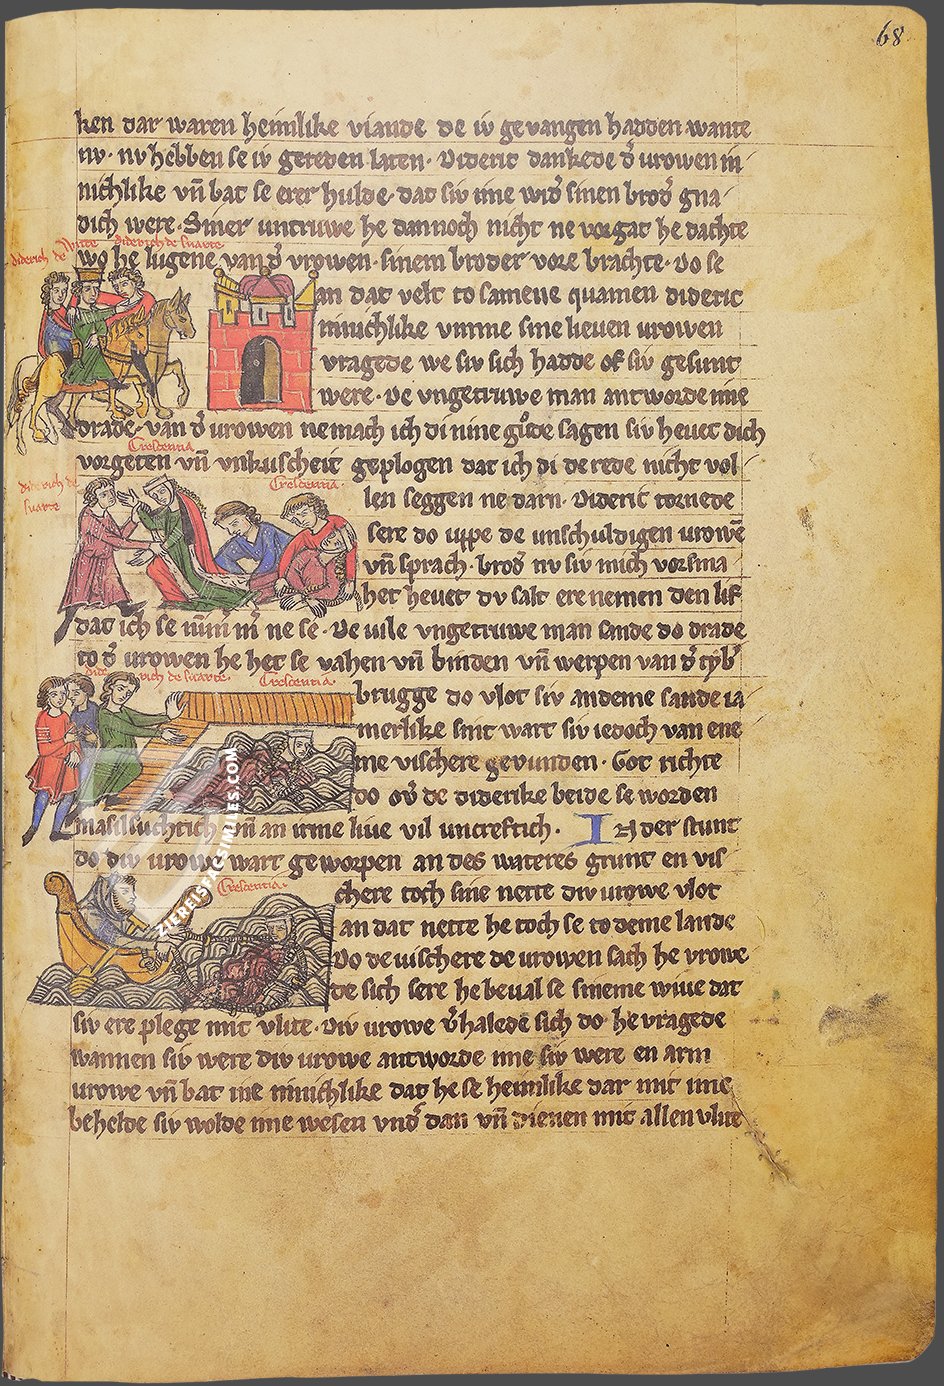 68
ken dar waren heimlike viande de iv gevangen hadden wante
nv · nv hebben se iv gereden laten · Dideric dankede d᷑ vrowen in
nichlike vn̄ bat se erer hulde · dat siv ime wid᷑ sinen brod᷑ gna
dich were · Siner untruwe he dannoch nicht ne vorgat he dachte
diderich de Witte diderich de suarte
wo he lugene van d᷑ vrowen · sinem broder vore brachte · Do se
an dat velt to samene quamen dideric
minichlike vmme sine lieven vrowen
vragede we siv sich hadde of siv gesunt
were · De vngetruwe man antworde ime
drade · van d᷑ vrowen ne mach ich di nine gůde sagen siv hevet dich
Crescentia
vorgeten vn̄ vnkuscheit geplogen dat ich di de rede nicht vol
diderich de suarte
Crescentia ·
len seggen ne darn · Dideric tornede
sere do uppe de unschuldigen vrowē
vn̄ sprach · brod᷑ nv siv mich vorsma
het hevet dv salt ere nemen den lif
dat ich se nūm̄ m̄ ne se · De vile vngetruwe man sande do drade
to d᷑ vrowen he het se vahen vn̄ binden vn̄ werpen van d᷑ tyb᷑
diderich de suarte · Crescentia ·
brugge do vlot siv an deme sande ia
merlike sint wart siv iedoch van ene
me vischere gevunden · Got richte
do ov᷑ de diderike beide se worden
masilsuchtich vn̄ an irme live vil uncreftich · IN der stunt
do div vrowe wart geworpen an des wateres grunt en vis
Crescentia ·
chere toch sine nette div vrowe vlot
an dat nette he toch se to deme lande
Do de vischere de vrowen sach he vrowe
de sich sere he beval se sineme wive dat
siv ere plege mit vlite · Div vrowe v᷑halede sich do he vragede
wannen siv were div vrowe antworde ime siv were en arm
vrowe vn̄ bat ine minichlike dat he se heimlike dar mit ime
behelde siv wolde ime wesen vnd᷑ dan vn̄ dienen mit allen vlite
ZIEREISFACSIMILES.COM